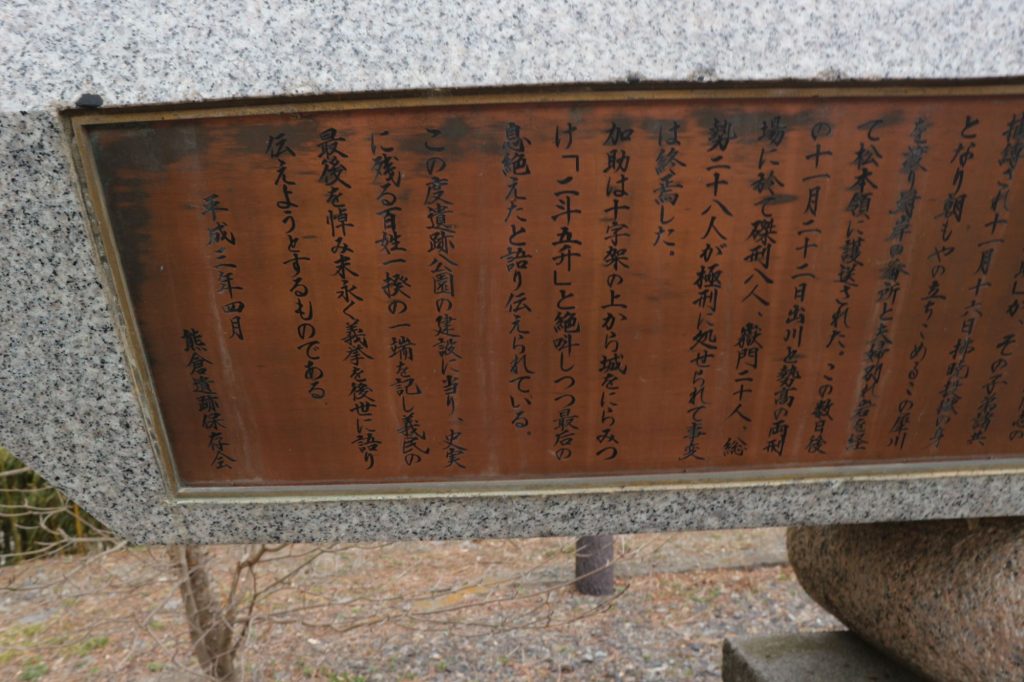 捕縛され十一月十六日払暁
となり朝もやの立ちこめるこの犀川
を渡り対岸の番所と夫婦別れ岩を経
て松本領に護送された。この数日後
の十一月二十二日出川と勢高の両刑
場に於て磔刑八人、獄門二十人、総
勢二十八人が極刑に処せられて事変
は終焉した。
加助は十字架の上から城をにらみつ
け「二斗五升」と絶叫しつつ最后の
息絶えたと語り伝えられている。
この度遺跡公園の建設に当り、史実
に残る百姓一揆の一端を記し義民の
最後を悼み末永く義挙を後世に語り
伝えようとするものである
平成二年四月
熊倉遺跡保存会